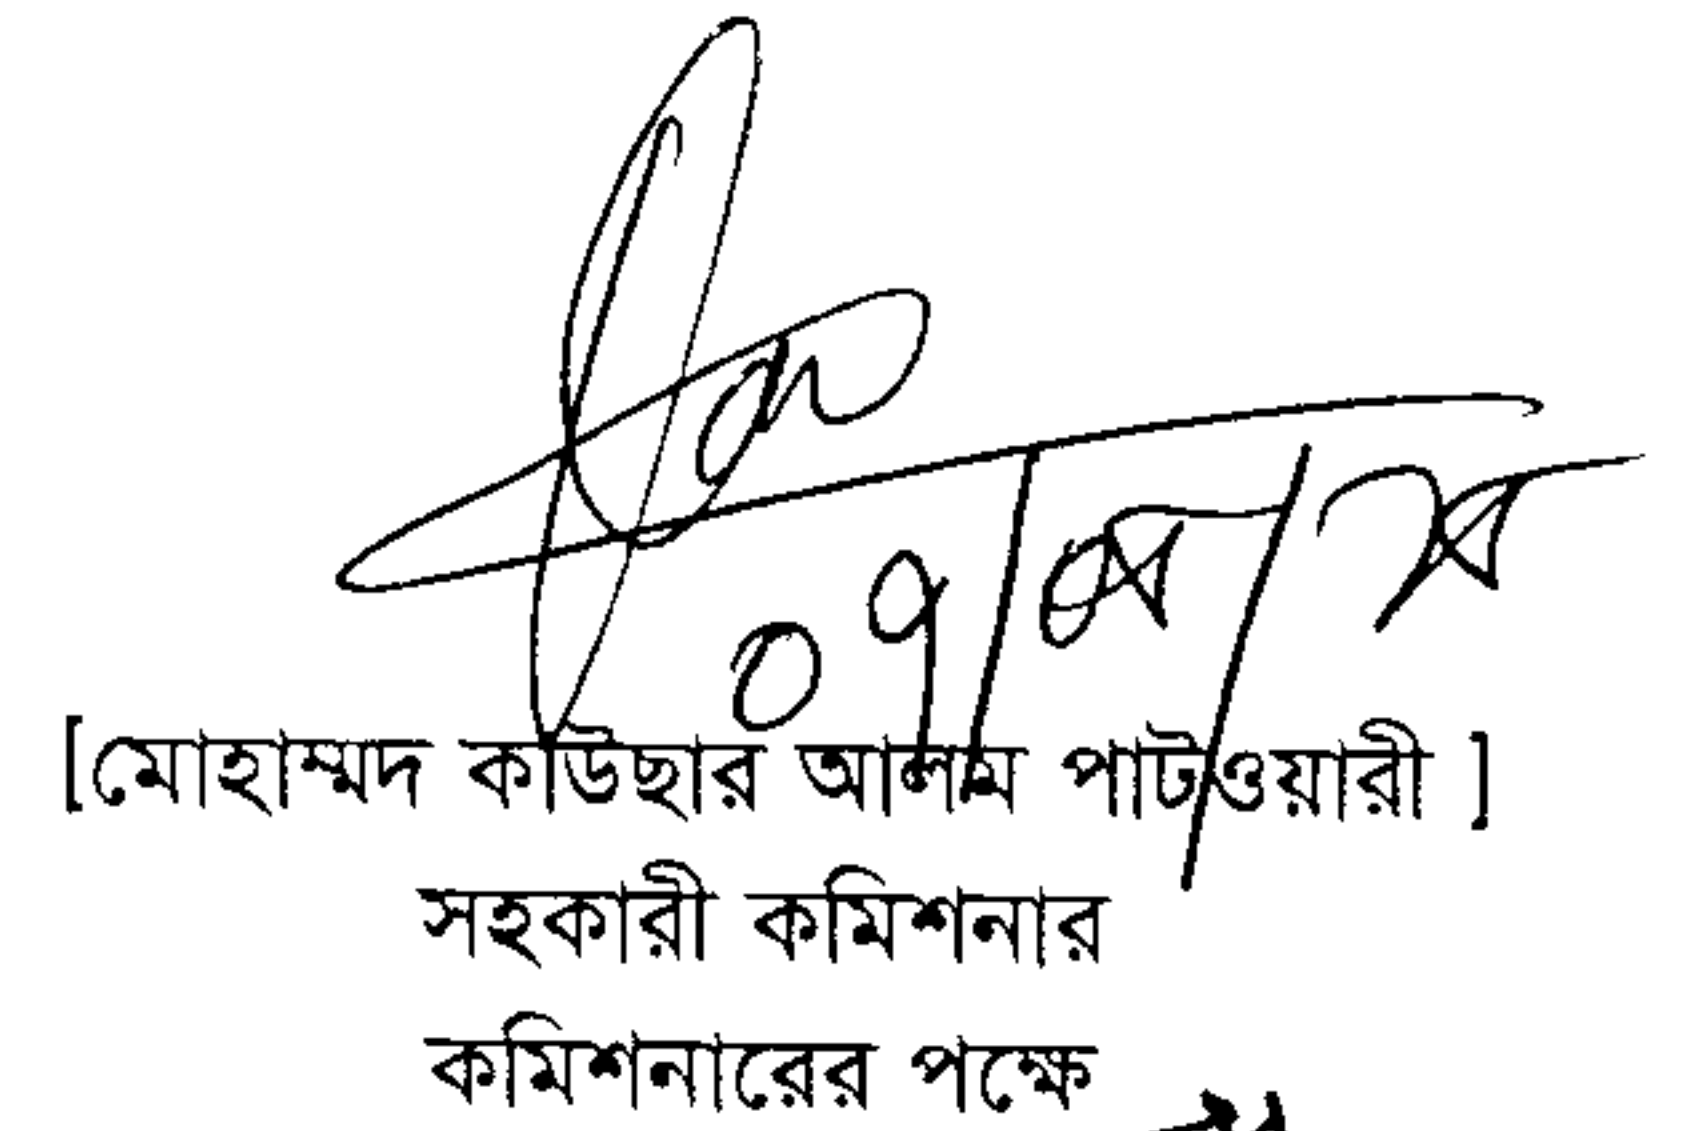 [মোহাম্মদ কাউছার আলম পাটওয়ারী ]
সহকারী কমিশনার
কমিশনারের পক্ষে